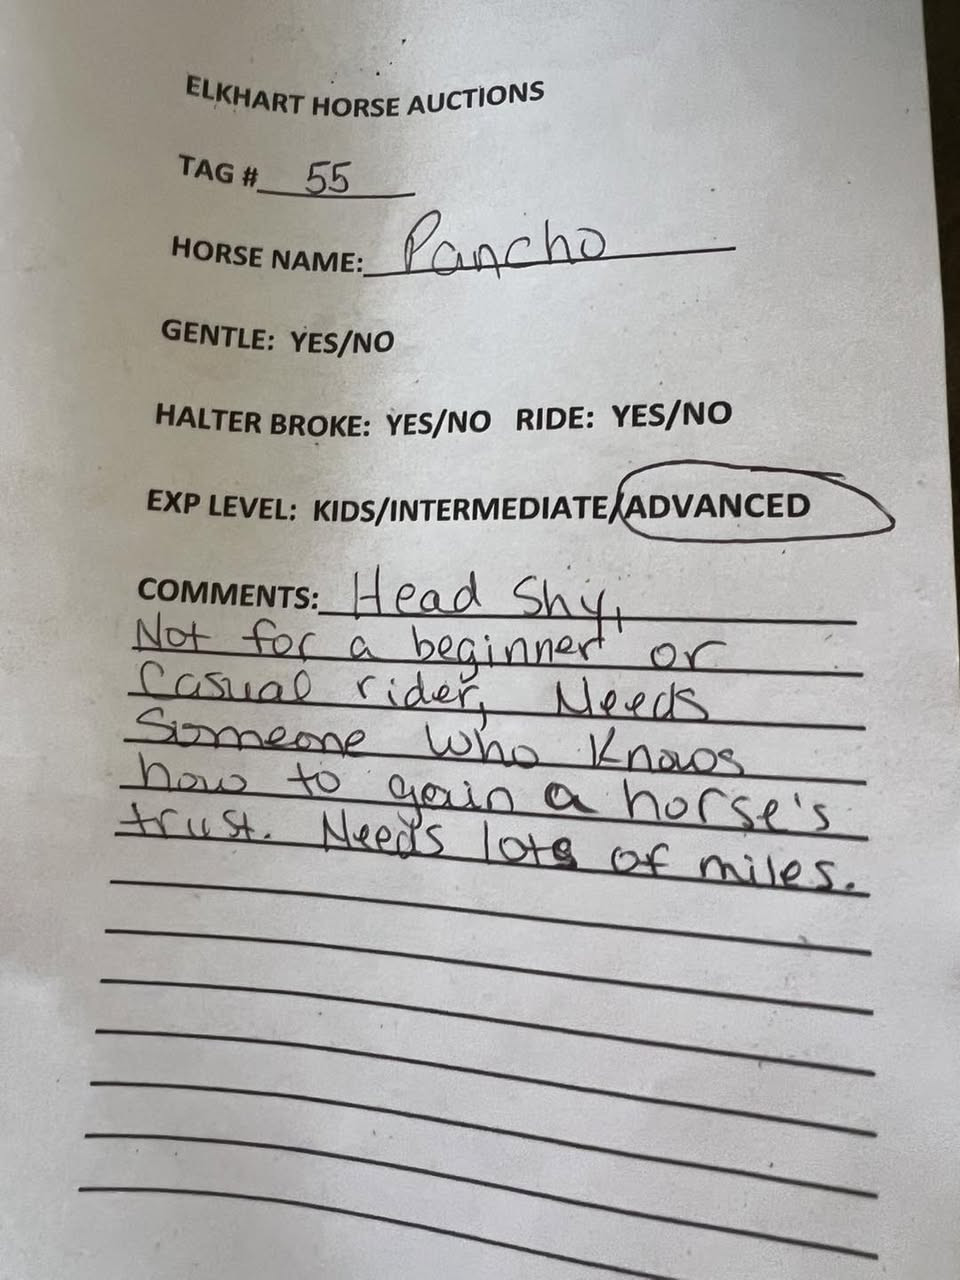 ELKHART HORSE AUCTIONS
TAG # 55
HORSE NAME: Pancho
GENTLE: YES/NO
HALTER BROKE: YES/NO RIDE: YES/NO
EXP LEVEL: KIDS/INTERMEDIATE/ADVANCED
COMMENTS: Head Shy,
Not for a beginner or
Casual rider, Needs
Someone who knows
how to gain a horse's
trust. Needs lots of miles.